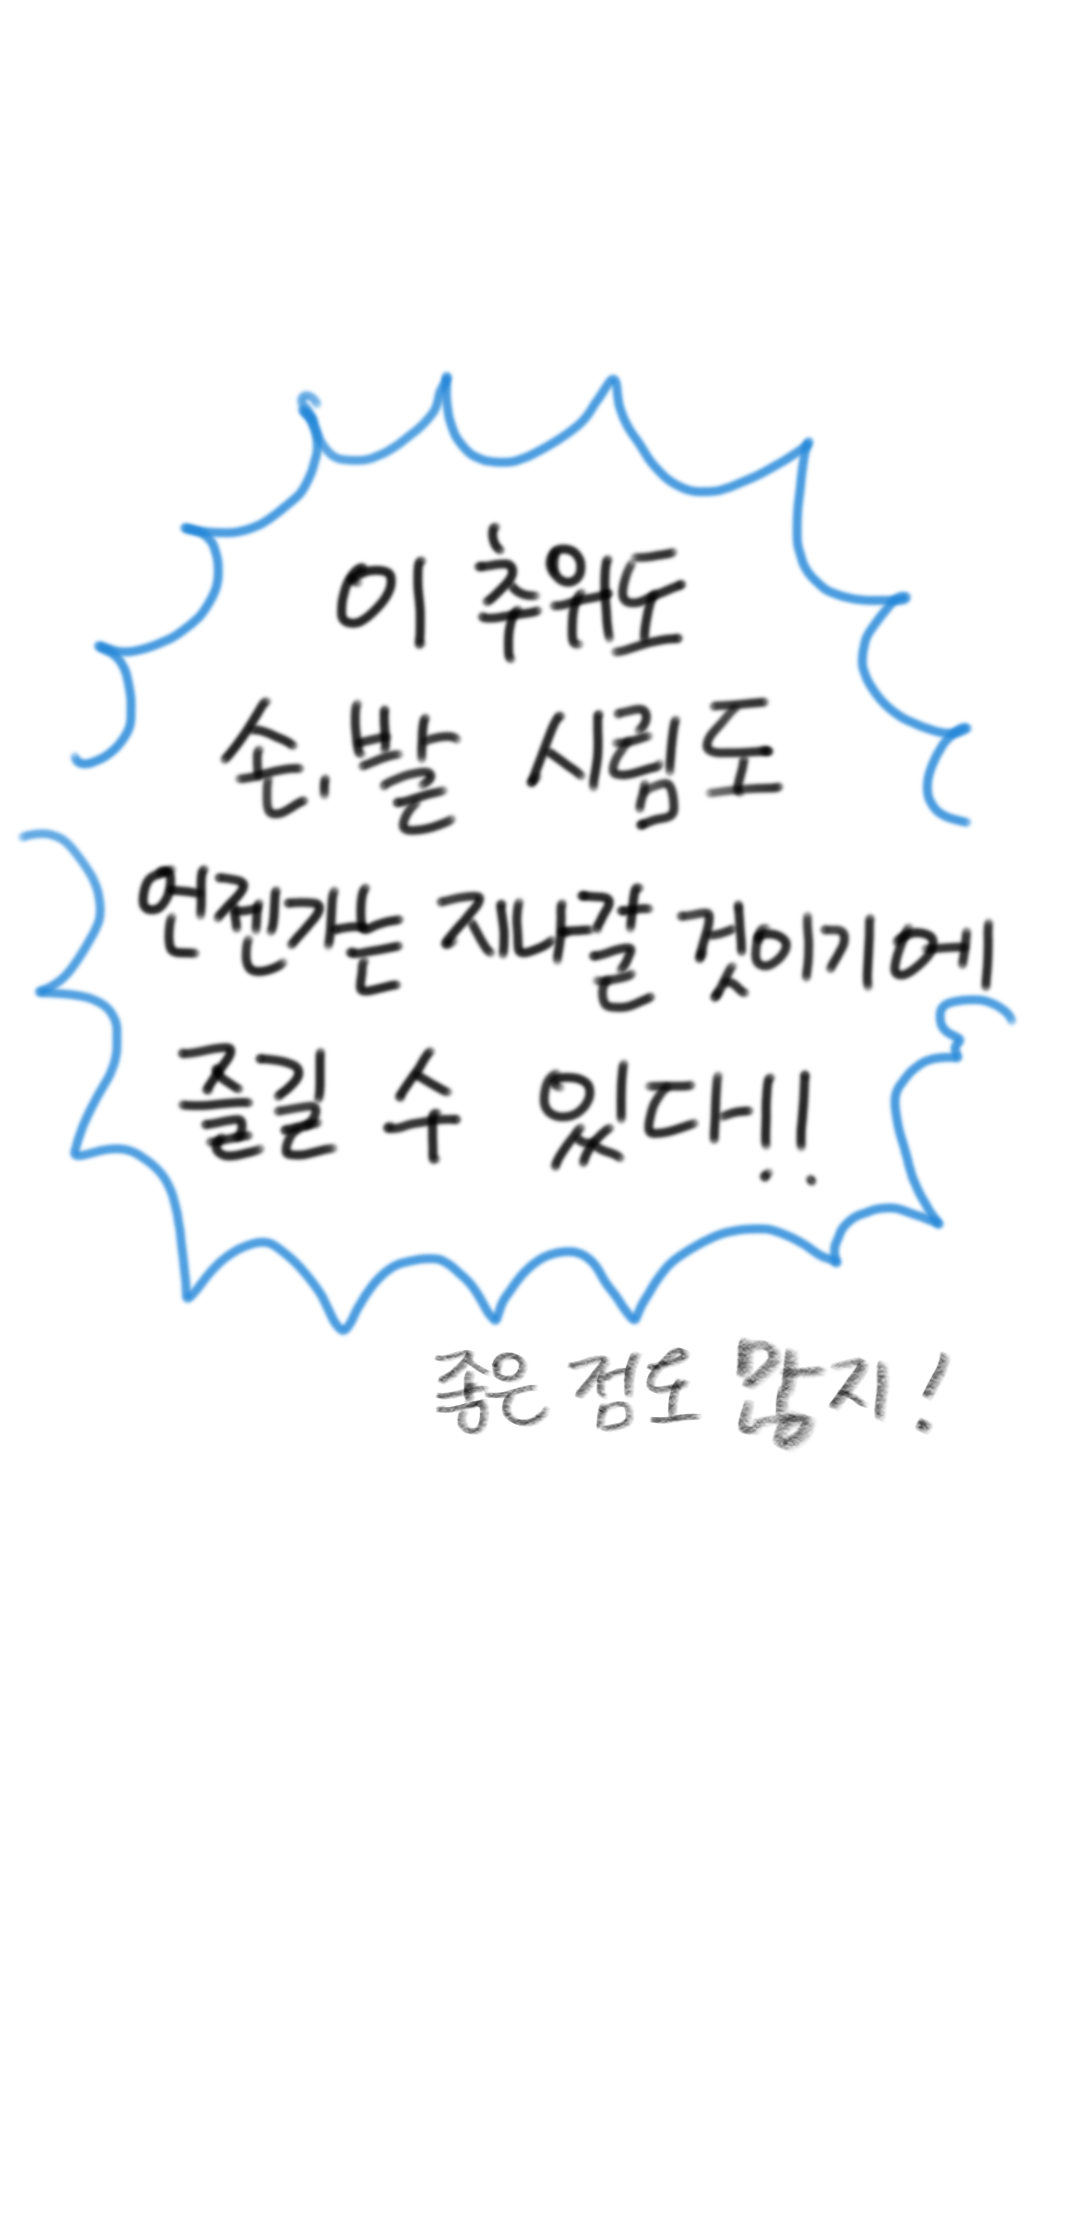 이 추위도
손,발 시림도
언젠가는 지나갈 것이기에
즐길 수 있다!!
좋은 점도 많지!